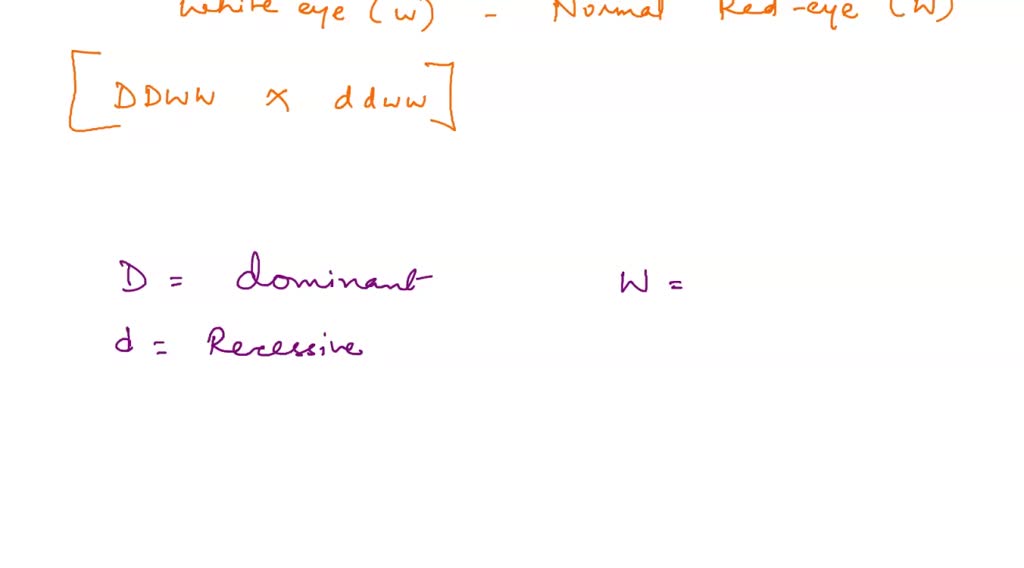 White eye (w) - Normal Red-eye (W)
[DDWW x ddww]
D = dominant W =
d = Recessive